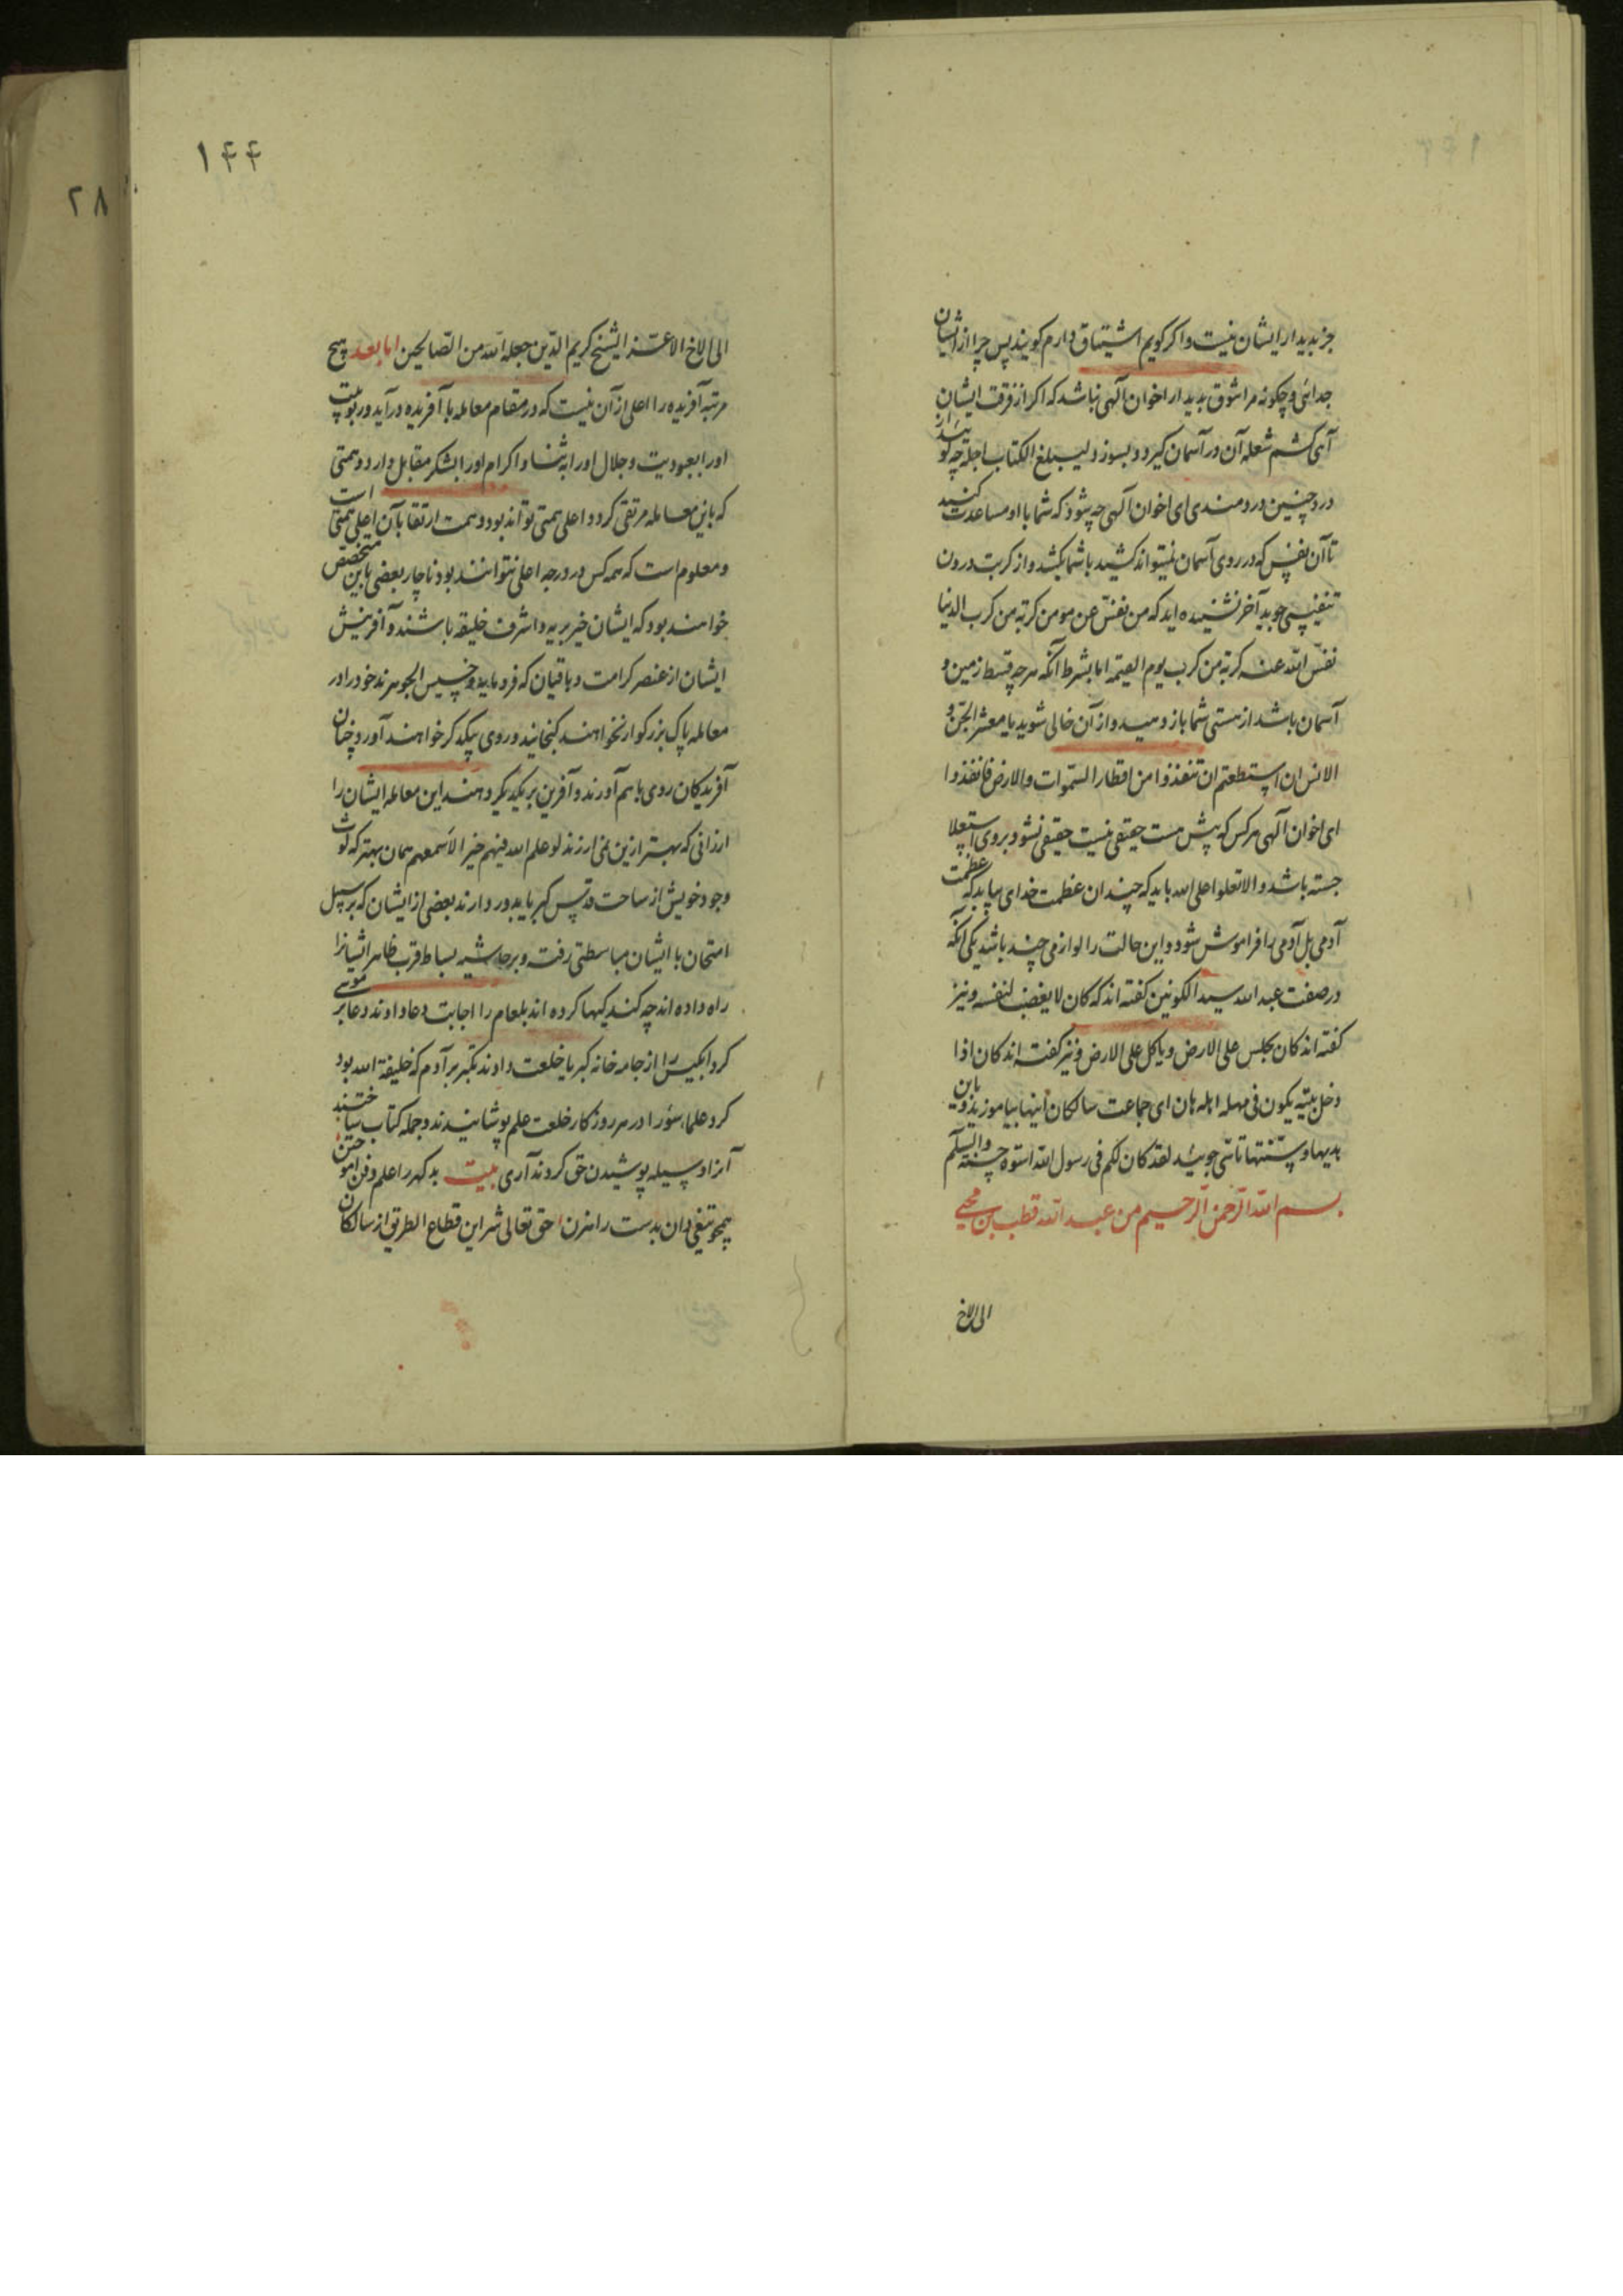 جز بدیدار ایشان نیست و اکر کویم اشتیاق دارم کویند پس چرا از ایشان
جدائی و چکونه مرا شوق بدیدار اخوان آلهی نباشد که اکر از فرقت ایشان
آهی کشم شعله آن در آسمان کیرد و بسوزد لیبلغ الکتاب اجله چه کو
درد چنین دردمندی ای اخوان آلهی چه شود که شما با او مساعدت کنید
تا آن نفس که در روی آسمان نمیتواند کشید با شما بکشد و از کربت درون
تنفیسی جوید آخر نشنیده اید که من نفس عن مومن کربة من کرب الدنیا
نفس الله عنه کربة من کرب یوم القیمة اما بشرط آنکه هر چه قسط زمین و
آسمان باشد از هستی شما باز دهید و از آن خالی شوید یا معشر الجن و
الانس ان استطعتم ان تنفذوا من اقطار السموات والارض فانفذوا
ای اخوان آلهی هر کس که پیش هست حقیقی نیست حقیقی نشود بر وی استعلا
جسته باشد و الا تعلوا علی الله باید که چندان عظمت خدای بیابد که عظمت
آدمی بل آدمی را فراموش شود و این حالت را لوازمی چند باشد یکی آنکه
در صفت عبد الله سید الکونین کفته اند که کان لا یغضب لنفسه و نیز
کفته اند کان یجلس علی الارض و یاکل علی الارض و نیز کفته اند کان اذا
دخل بیته یکون فی مهله اهله هان ای جماعت سالکان اینها بیاموزید و باین
هدیها و سنتها تاسی جوئید لقد کان لکم فی رسول الله اسوه حسنه والسلم
بسم الله الرحمن الرحیم من عبد الله قطب بن محیی
الی الاخ
۱۴۴
۲۸
الی الاخ الاعز الشیخ کریم الدین جعله الله من الصالحین اما بعد هیچ
مرتبه آفریده را اعلی از آن نیست که در مقام معامله با آفریده در آید و ربوبیت
او را بعبودیت و جلال او را به ثنا و اکرام او را بشکر مقابل دارد و همتی
که باین معامله مرتقی کردد اعلی همتی تواند بود و همت ارتقا بآن اعلی همتی است
و معلوم است که همه کس در درجه اعلی نتوانند بود ناچار بعضی باین متخصص
خواهند بود که ایشان خیر بریه و اشرف خلیقه باشند و آفرینش
ایشان از عنصر کرامت و باقیان که فرومایه و خسیس الجوهرند خود را در
معامله پاک بزرکوار نخواهند کنجانید و روی بیکدکر خواهند آورد و چنان
آفریدکان روی باهم آورند و آفرین بر یکدیکر دهند این معامله ایشان را
ارزانی که بهتر ازین نمی ارزند لو علم الله فیهم خیر الاسمعهم همان بهتر که لوث
وجود خویش از ساحت قدس کبریا بدور دارند بعضی از ایشان که بر سبیل
امتحان با ایشان مباسطتی رفت و بر حاشیه بساط قرب ظاهر ایشانرا
راه داده اند چه کند کیها کرده اند بلعام را اجابت دعا دادند دعا بر موسی
کرد ابلیس را از جامه خانه کبریا خلعت دادند تکبر بر آدم که خلیفة الله بود
کرد علماء سؤ را در هر روزکار خلعت علم پوشانیدند و جمله کتاب ساختند
آنرا وسیله پوشیدن حق کردند آری بیت بد کهر را علم و فن آموختن
همچو تیغی دان بدست راهزن حق تعالی شر این قطاع الطریق از سالکان